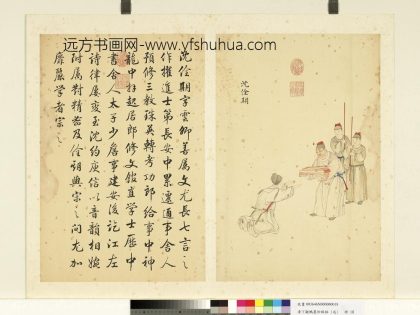 远方书画网-www.yfshuhua.com
沈佺期
沈佺期字雲卿善屬文尤長七言之
作擢進士第長安中累遷通事舍人
預修三教珠英轉考功郎給事中神
龍中拜起居郎修文館直學士歷中
書舍人太子少詹事建安後訖江左
詩律屢變至沈約庾信以音韻相婉
附屬對精密及佺期與宋之問尤加
靡麗學者宗之